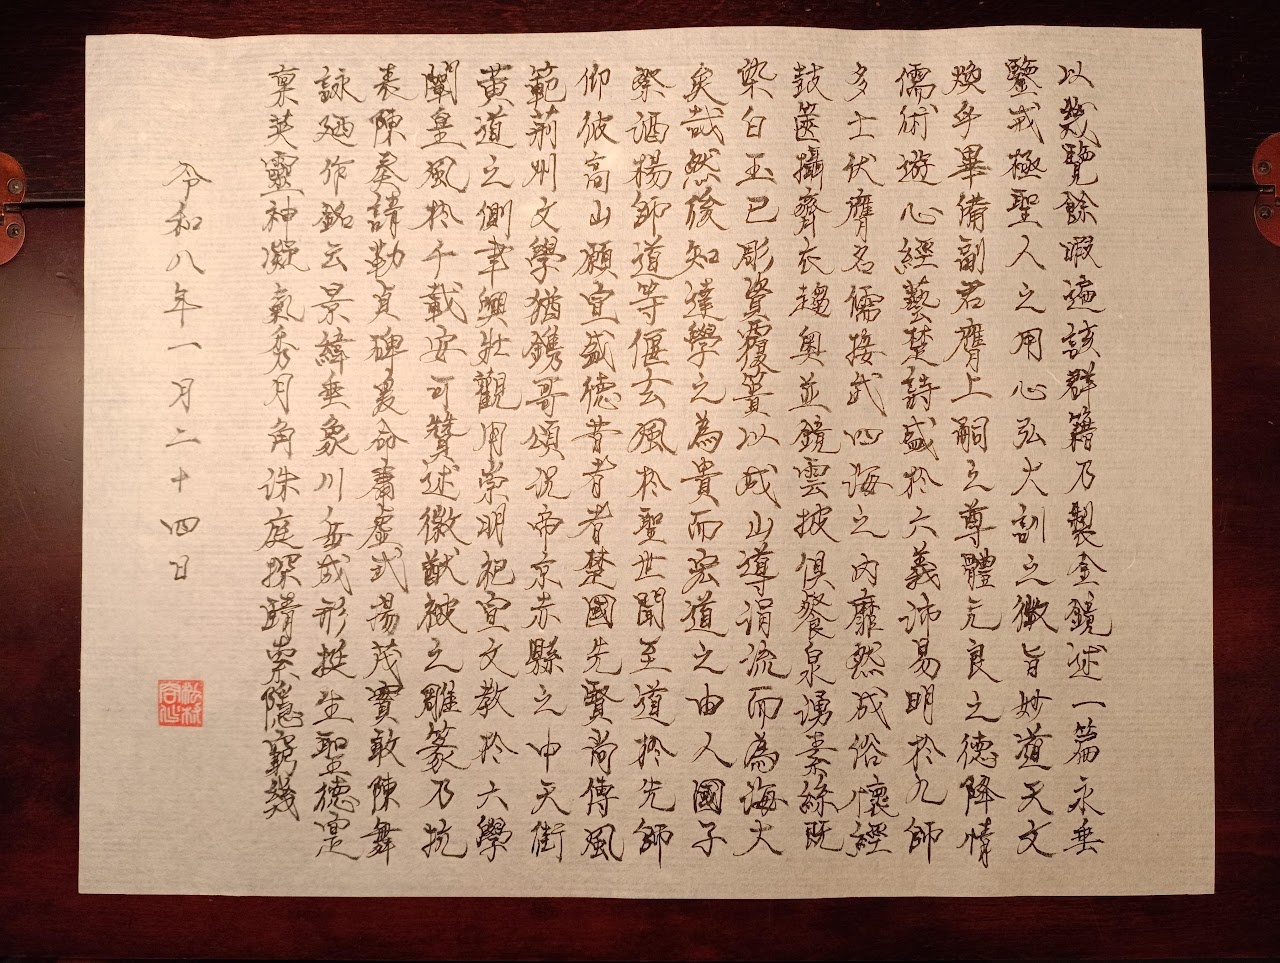 以幾覽餘暇遍該群籍乃製金鏡述一篇永垂
鑒戒極聖人之用心弘大訓之徵旨妙道天文
煥乎畢備副君膺上嗣之尊體元良之德降情
儒術遊心經藝楚詩盛於六義沛易明於九師
多士伏膺名儒接武四海之內靡然成俗懷經
鼓篋攝齊衣趨奧並鏡雲披俱餐泉湧素絲既
染白玉已彫資覆簣以成山導涓流而為海大
矣哉然後知達學之為貴而宏道之由人國子
祭酒楊師道等偃玄風於聖世聞至道於先師
仰彼高山願宣盛德昔者者楚國先賢尚傳風
範荊州文學猶鐫哥頌況帝京赤縣之中天街
黃道之側聿興壯觀用崇明祀宣文教於六學
闡皇風於千載安可贊述徽猷被之雕篆乃抗
表陳奏請勒貞碑爰命庸虛式揚茂實敢陳舞
詠迺作銘云景緯垂象川岳成形挺生聖德寔
稟英靈神凝氣秀月角珠庭探賾索隱窮幾
令和八年一月二十四日